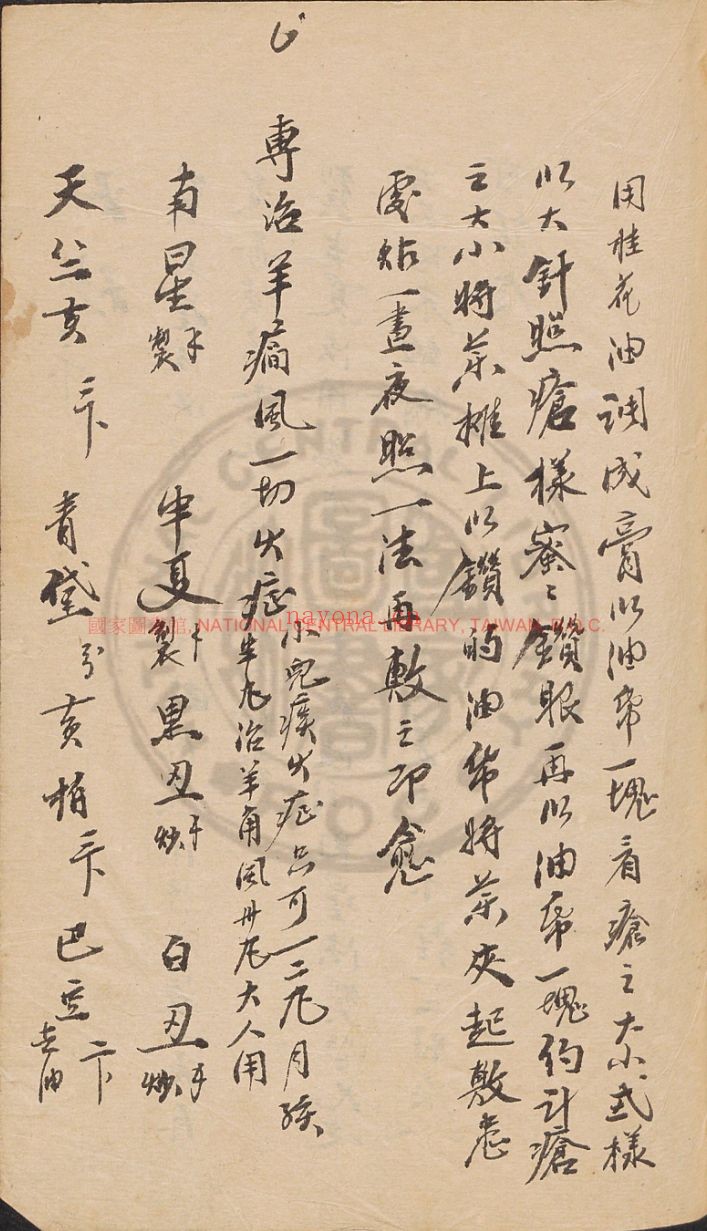 用桂花油調成膏以油帋一塊看瘡之大小式樣
以大針照瘡樣蜜〻鑽眼再以油帋一塊約計瘡
之大小將藥攤上以鑽的油帋將藥夾起敷患
處貼一晝夜照一法再敷之即愈
專治羊癎風一切火症小兒痰火症只可一二九月孩
半九治羊角風卅九大人用
南星製 半夏製 黑丑炒 白丑炒
天竺黃 青黛 黃柏 巴豆去油
國家圖書館, NATIONAL CENTRAL LIBRARY, TAIWAN, R.O.C.
nayona